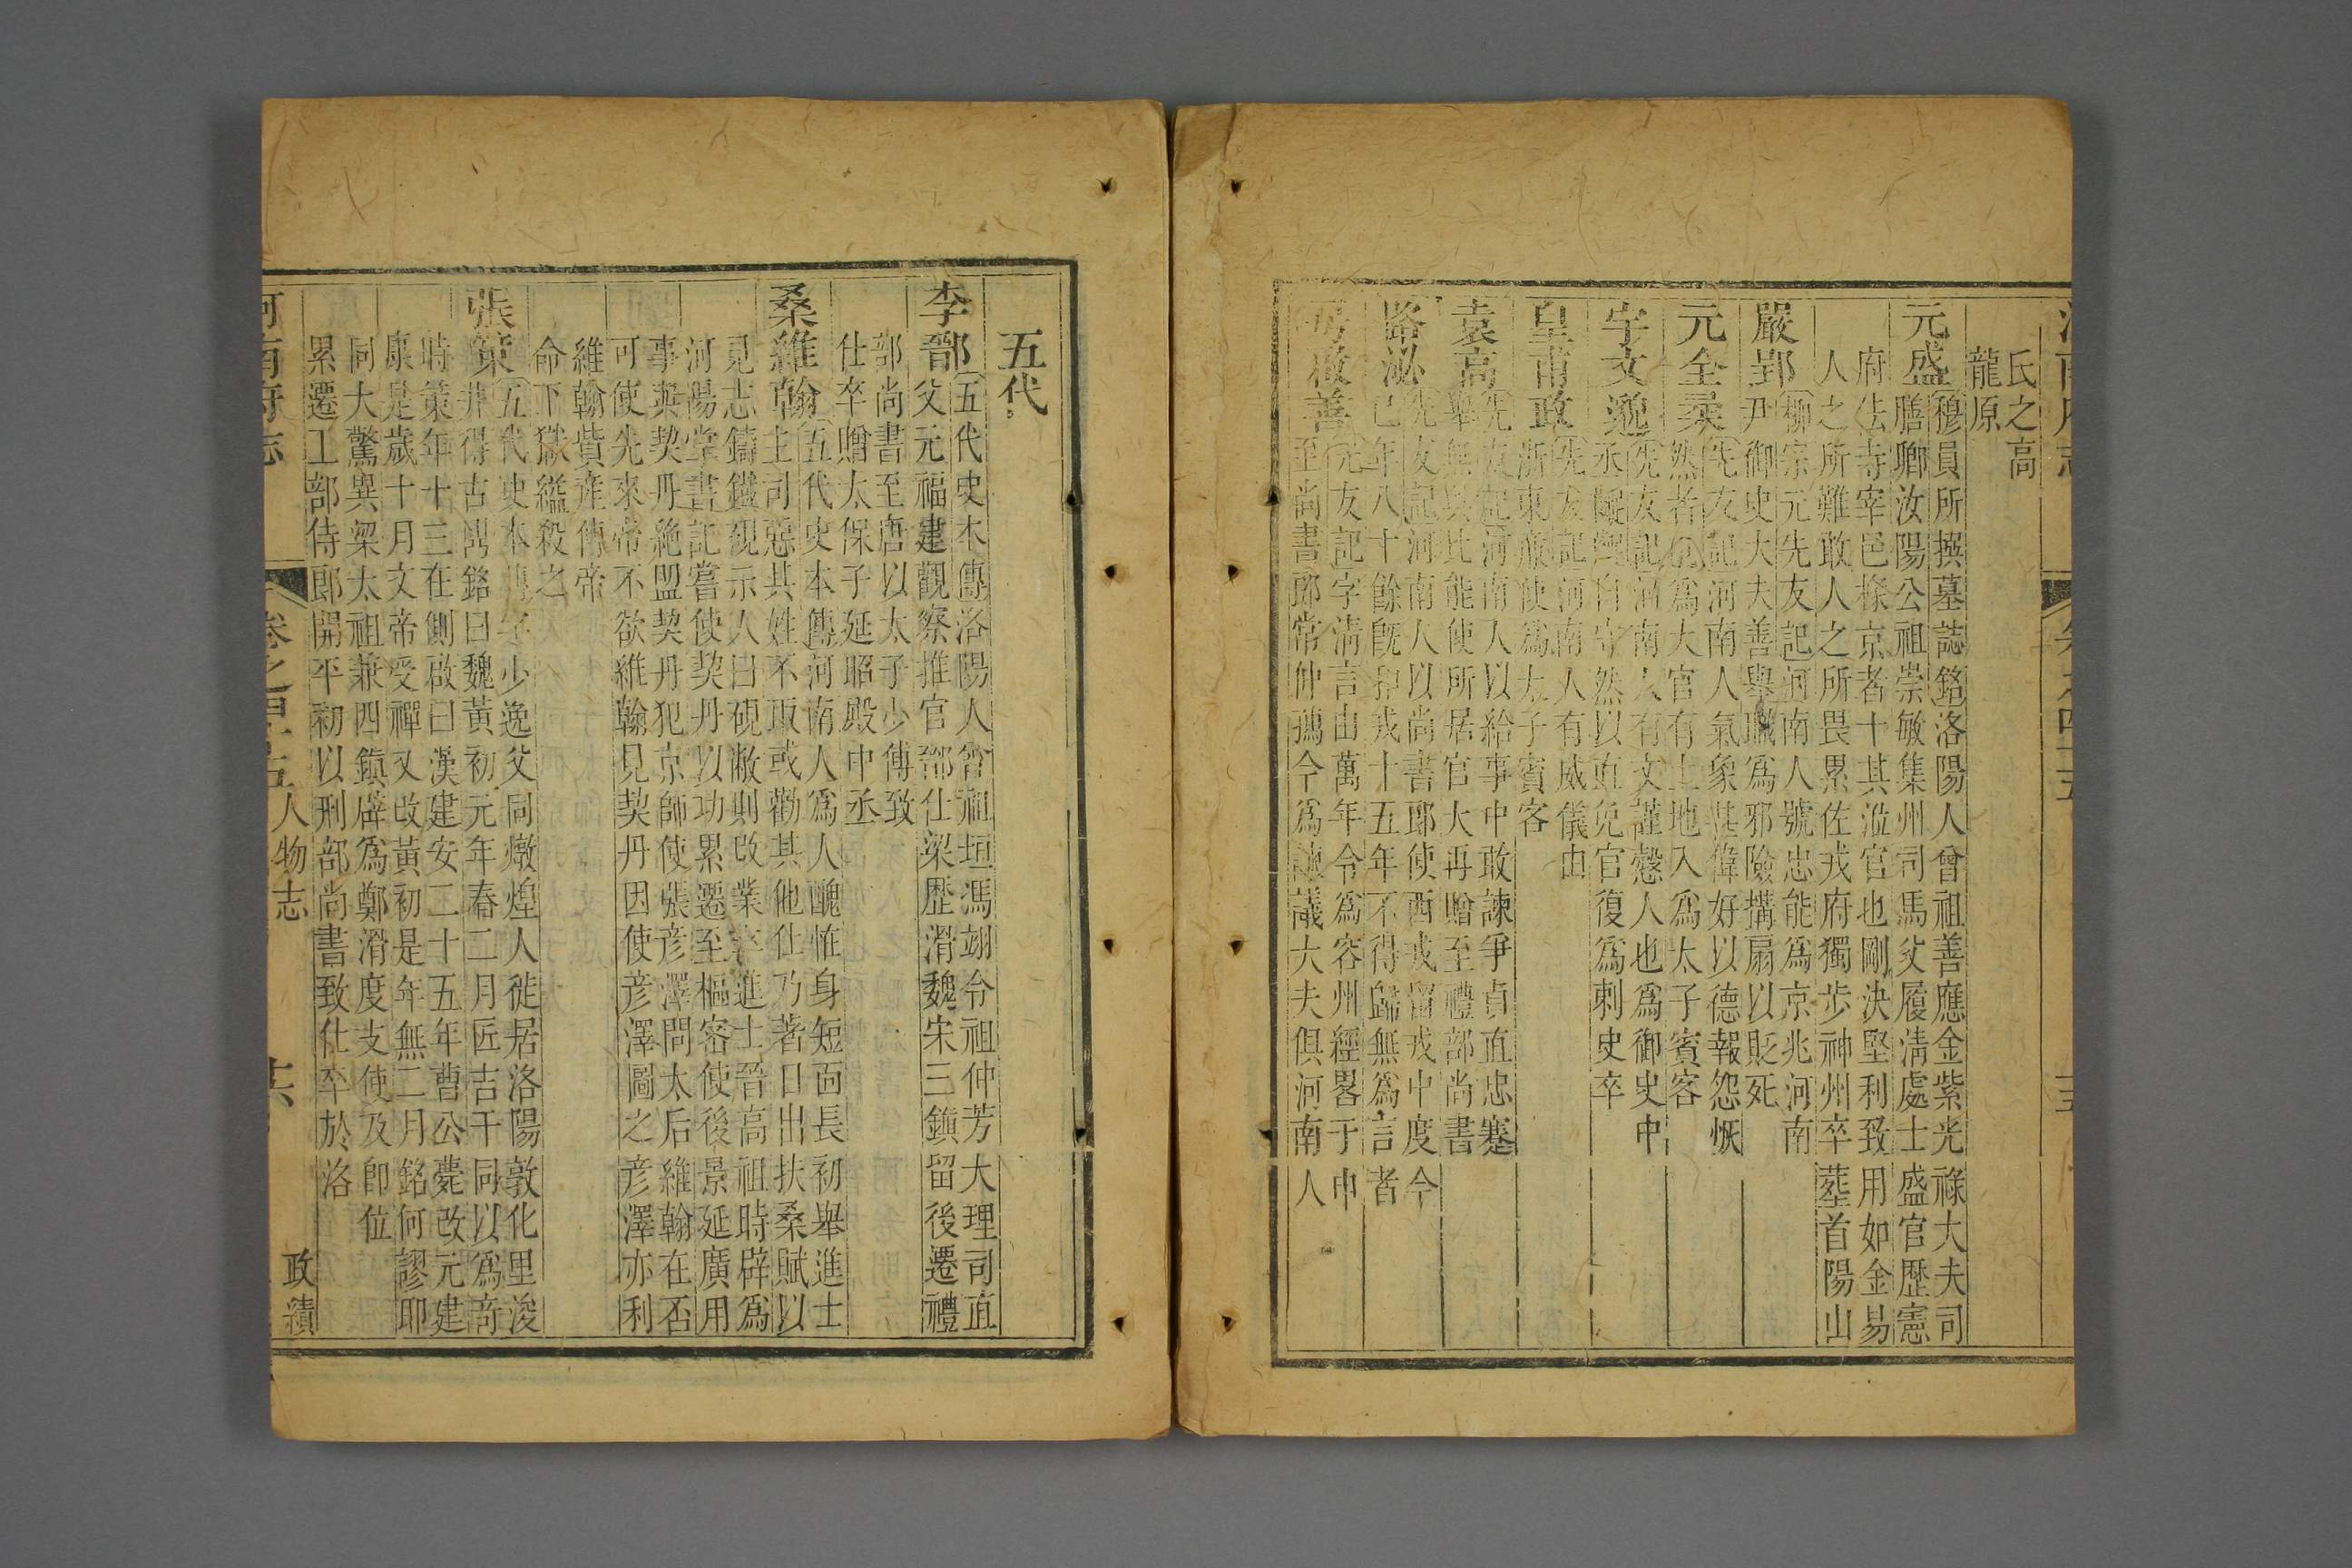 氏之高
龍原
元盛
穆員所撰墓誌銘洛陽人曾祖善應金紫光祿大夫司
膳卿汝陽公祖崇敏集州司馬父履清處士盛官歷憲
府法寺宰邑椽京者十其滥官也剛決堅利致用如金易
人之所難敢人之所畏累佐戎府獨步神州卒葬首陽山
嚴郢
柳宗元先友記河南人號忠能為京兆河南
尹御史大夫善舉職為邪險搆扇以貶死
元全柔
先友記河南人氣象甚偉好以德報怨恢
然者也為大官有土地入為太子賓客
宇文邈
先友記河南人有文謹愨人也為御史中
丞 自守然以直免官復為刺史卒
皇甫政
先友記河南人有威儀由
浙東廉使為太子賓客
袁高
先友記河南人以給事中敢諫爭貞直忠蹇
舉無與比能使所居官大再贈至禮部尚書
路泌
先友記河南人以尚書郎使西戎留戎中度今
已年八十餘既和戎十五年不得歸無為言者
先友記字清言由萬年令為容州經畧于中
至尚書郎常仲孺今為諫議大夫俱河南人
五代
李郁
五代史本傳洛陽人曾祖垣馮翊令祖仲芳大理司直
父元福建觀察推官郁仕梁歷滑魏宋三鎮留後遷禮
部尚書至唐以太子少傅致
仕卒贈太保子延昭殿中丞
桑維翰
五代史本傳河南人為人醜惟身短面長初舉進士
主司惡其姓不取或勸其他仕乃著日出扶桑賦以
見志鑄鐵硯示人曰硯敝則改業卒進士晉高祖時辟為
河陽掌書記嘗使契丹以功累遷至樞密使後景延廣用
事與契丹絶盟契丹犯京師使張彦澤問太后維翰在否
可使先來帝不欲維翰見契丹因使彦澤圖之彦澤亦利
維翰貲産傳帝
命下獄縊殺之
張策
五代史本傳字少逸父同燉煌人徙居洛陽敦化里浚
井得古鼎銘曰魏黃初元年春二月匠吉千同以為奇
時策年十三在側啟曰漢建安二十五年曹公薨改元建
康是歲十月文帝受禪又改黃初是年無二月銘何謬耶
同大驚異梁太祖兼四鎮辟為鄭滑度支使及即位
累遷工部侍郎開平初以刑部尚書致仕卒於洛
河南府志 卷之四十五 人物志 政績